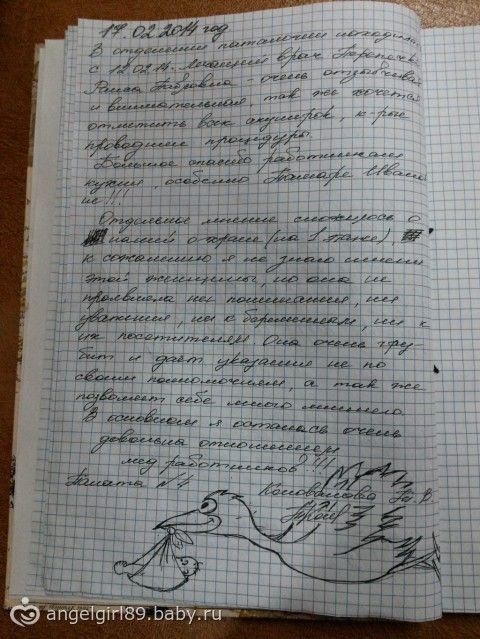 17.02.2014 год
В отделении патологии нахожусь
с 12.02.14. Лечащий врач
- очень отзывчивая
и внимательная, так же хочется
отметить всех акушеров, к-рые
проводили процедуры.
Большое спасибо работникам
кухни, особенно Тамаре Ивановне
!!!
Отдельное мнение сложилось о
нашей охране (на 1 этаже),
к сожалению я не знаю имени
этой женщины, но она не
проявляла ни понимания, ни
уважения, ни к беременным, ни к
их посетителям. Она очень гру-
бит и даёт указания не по
своим полномочиям, а так же
позволяет себе много лишнего.
В основном я осталась очень
довольна отношением
мед работников!!!
Палата №4
Коновалова
angelgirl89.baby.ru